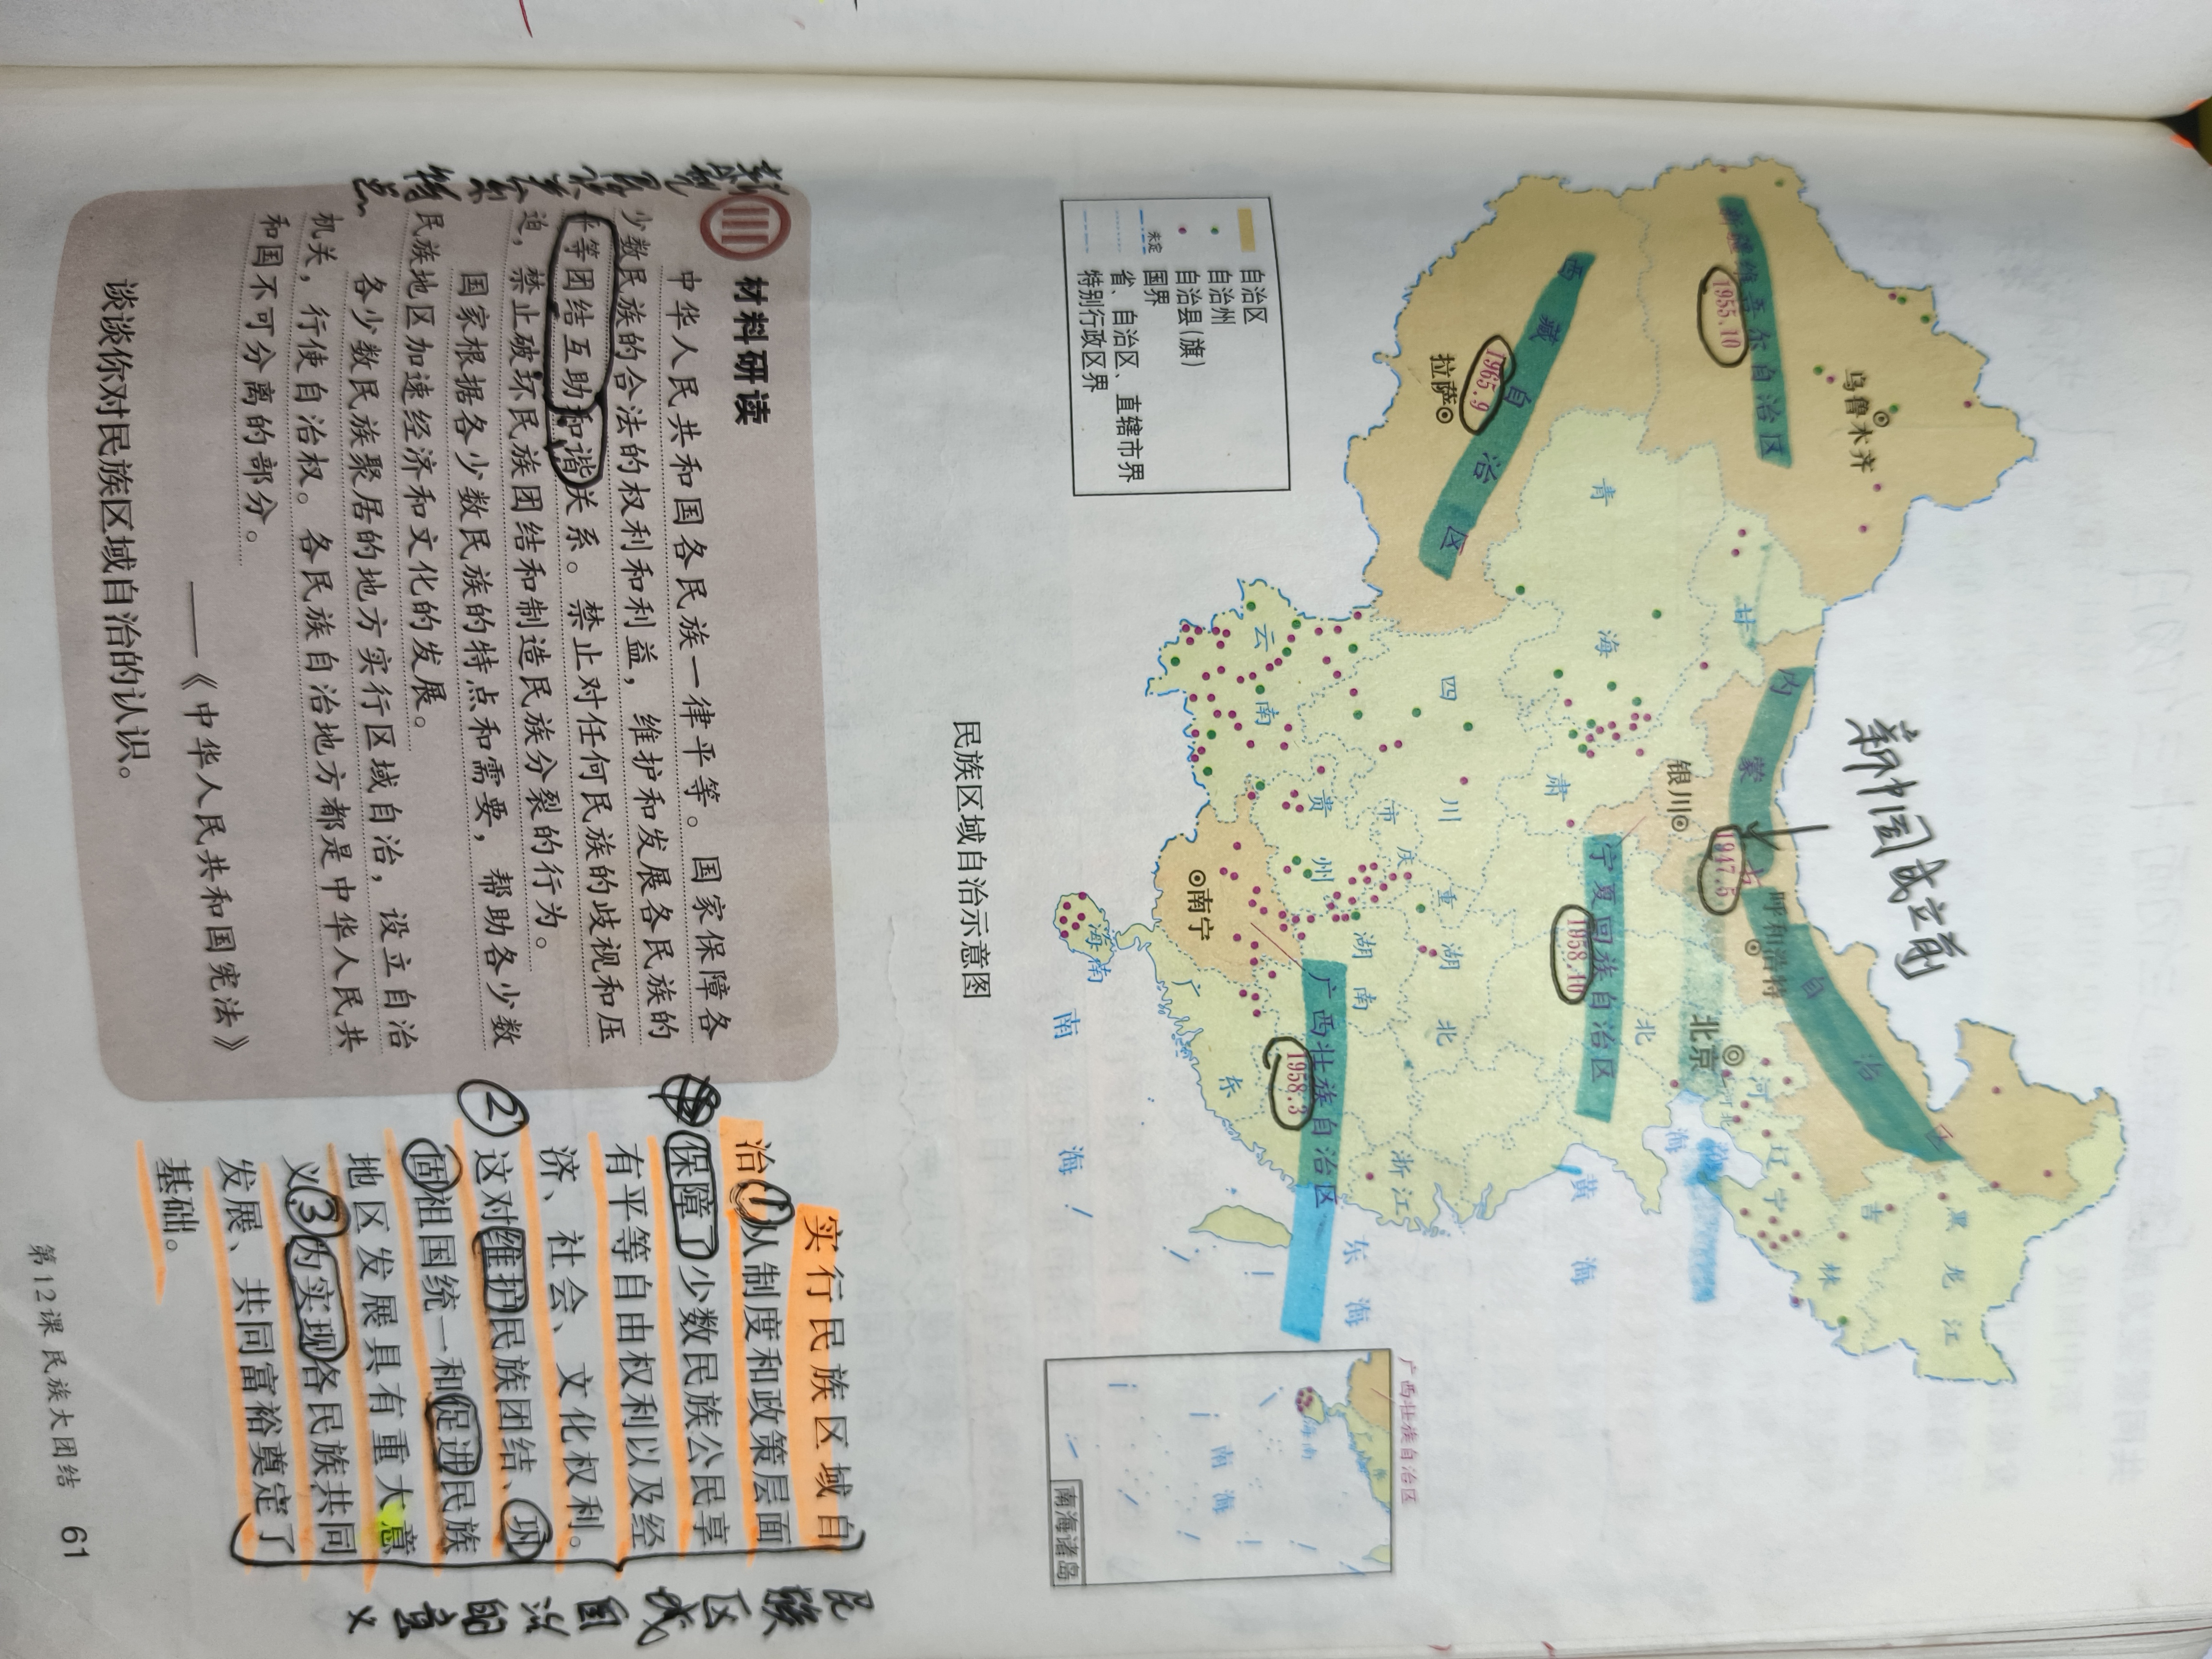 新中国成立前
新疆维吾尔自治区
1955.10
乌鲁木齐
西藏自治区
1965.9
拉萨
内蒙古自治区
1947.5
呼和浩特
银川
宁夏回族自治区
1958.10
北京
广西壮族自治区
1958.3
南宁
青海
甘肃
四川
重庆市
云南
贵州
湖南
湖北
广东
海南
浙江
河北
辽宁
吉林
黑龙江
渤海
黄海
东海
南海
自治区
自治州
自治县(旗)
未定 国界
省、自治区、直辖市界
特别行政区界
广西壮族自治区
海南
南海
南海诸岛
民族区域自治示意图
材料研读
中华人民共和国各民族一律平等。国家保障各
少数民族的合法的权利和利益，维护和发展各民族的
平等团结互助和谐关系。禁止对任何民族的歧视和压
迫，禁止破坏民族团结和制造民族分裂的行为。
国家根据各少数民族的特点和需要，帮助各少数
民族地区加速经济和文化的发展。
各少数民族聚居的地方实行区域自治，设立自治
机关，行使自治权。各民族自治地方都是中华人民共
和国不可分离的部分。
——《中华人民共和国宪法》
谈谈你对民族区域自治的认识。
民族关系特点
实行民族区域自
治①从制度和政策层面
保障了少数民族公民享
有平等自由权利以及经
济、社会、文化权利。
②这对维护民族团结、巩
固祖国统一和促进民族
地区发展具有重大意
义③为实现各民族共同
发展、共同富裕奠定了
基础。
民族区域自治的意义
第12课 民族大团结 61